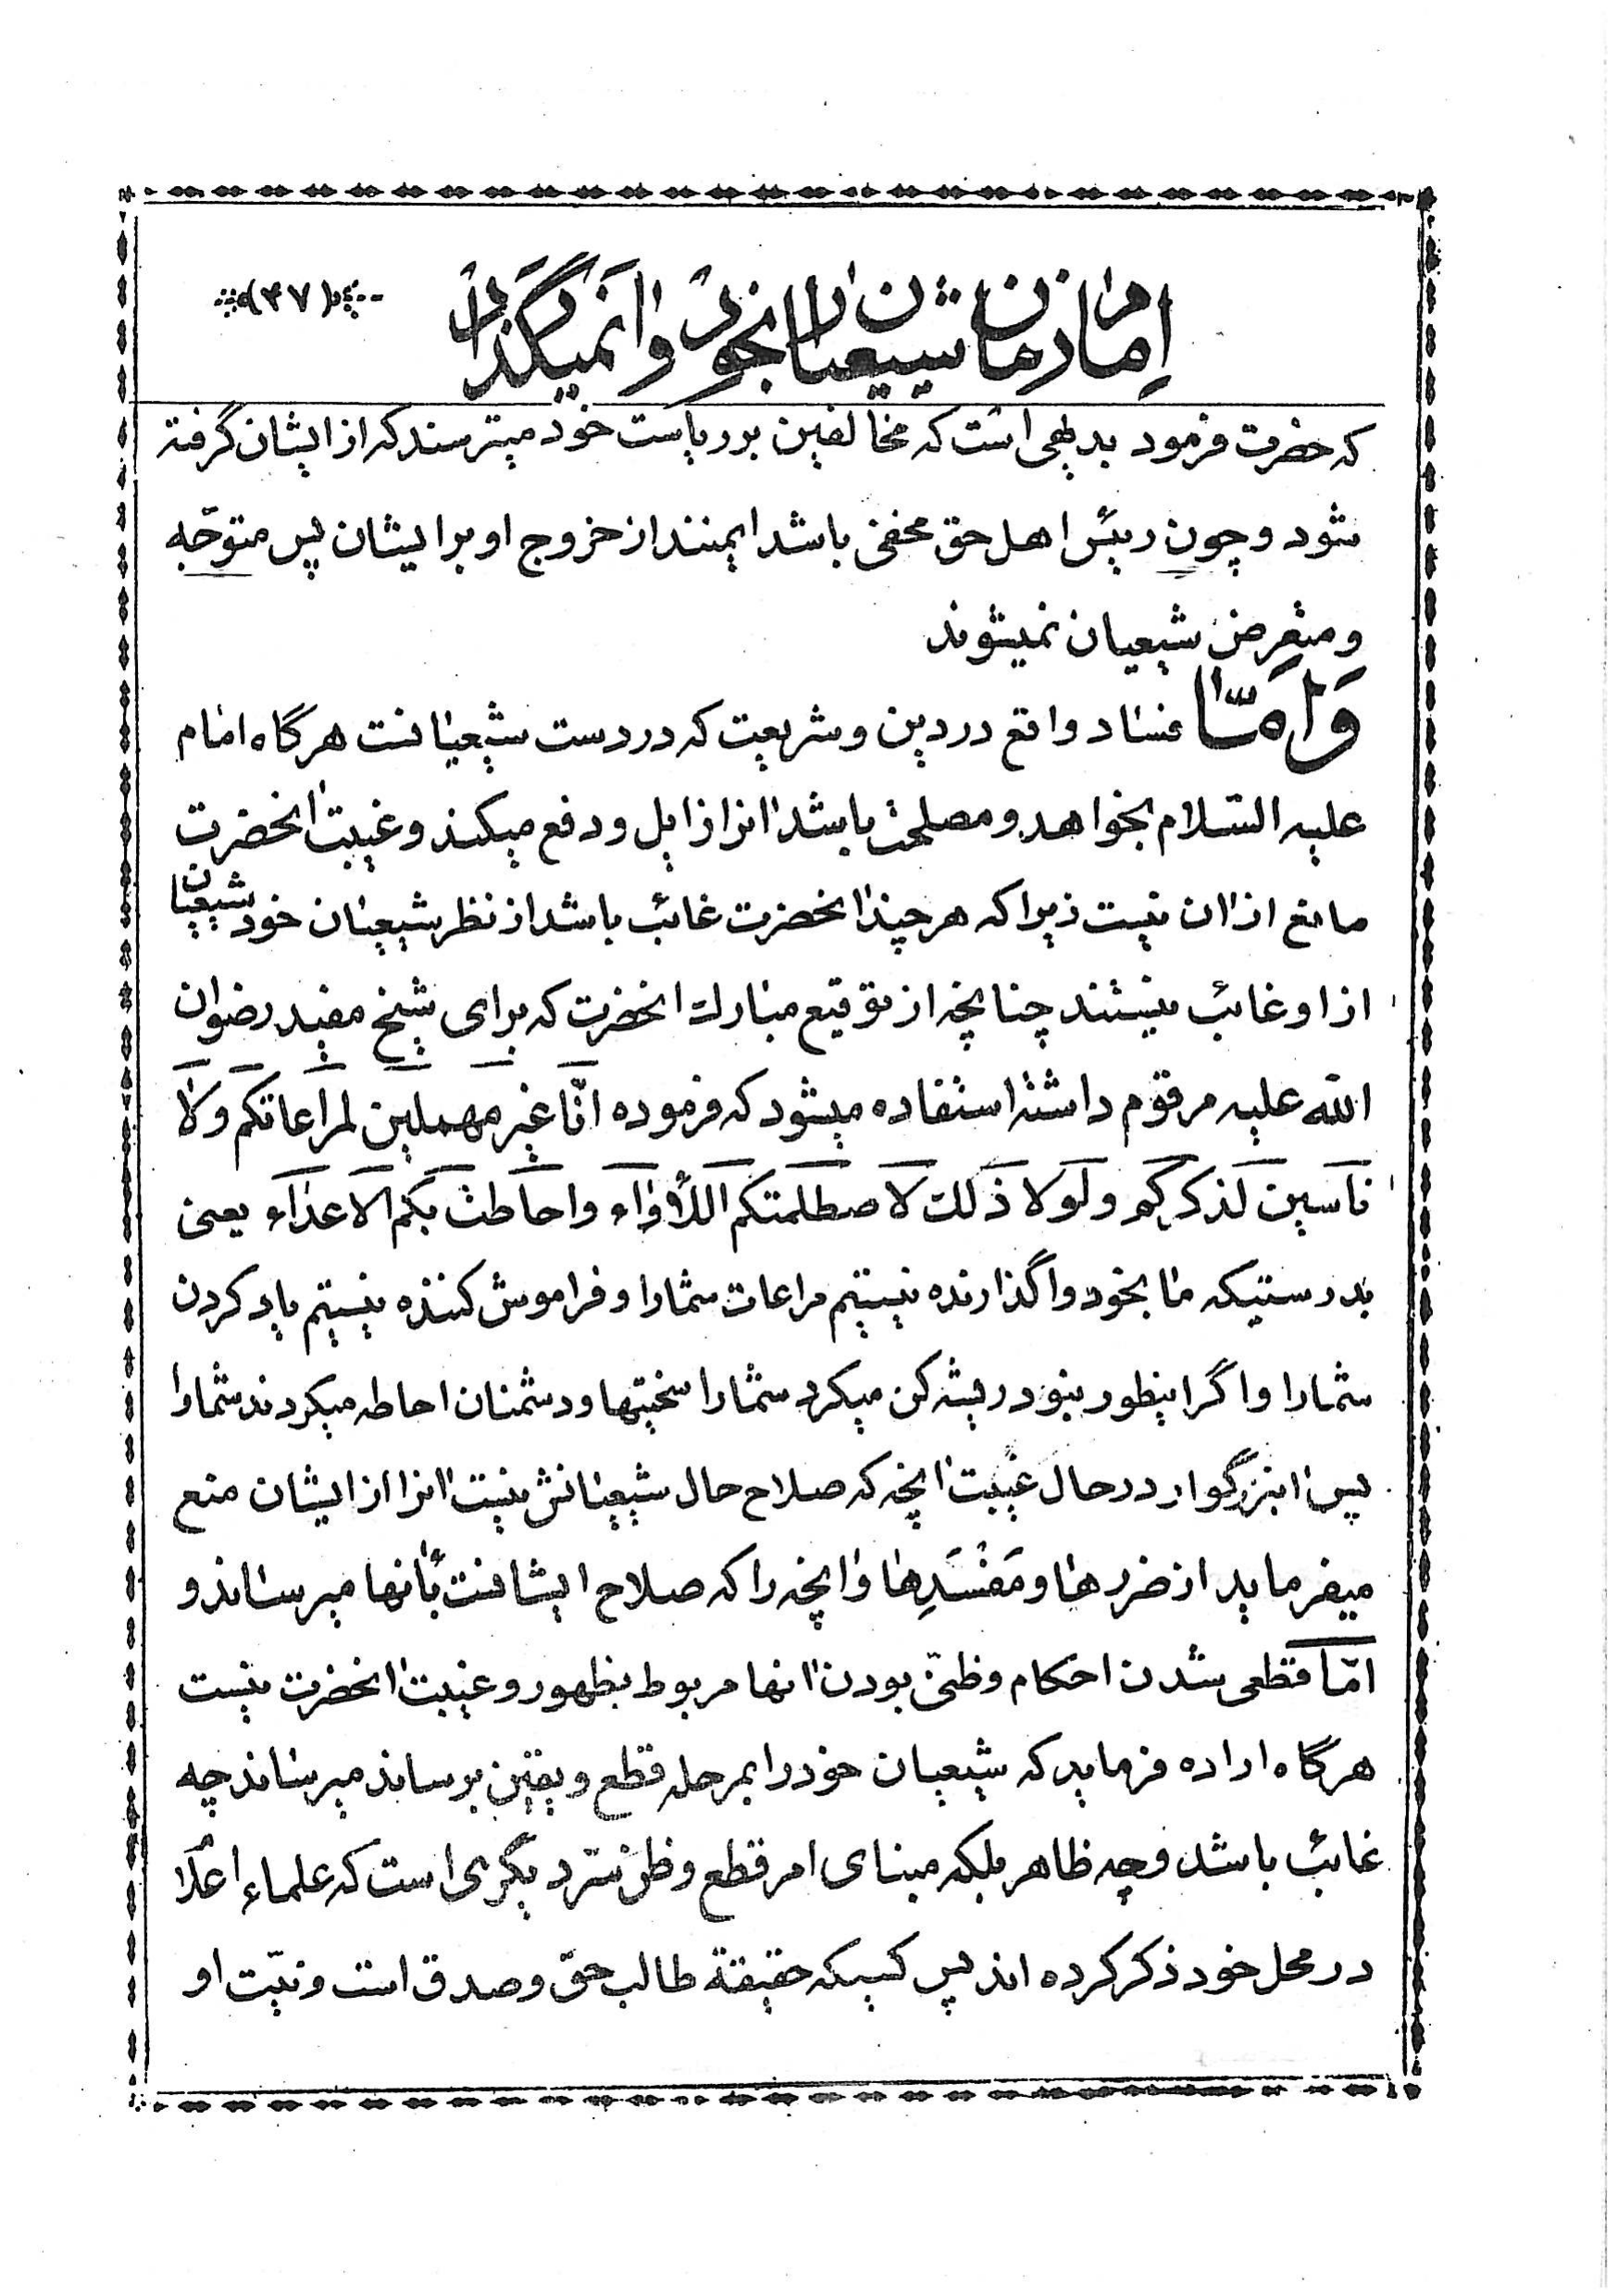 امام زمان شیعیان را بخود وانمیگذارد
(۳۷)
که حضرت فرمود بدیهی است که مخالفین بر ریاست خود میترسند که از ایشان گرفته
شود و چون رئیس اهل حق مخفی باشد ایمنند از خروج او بر ایشان پس متوجّه
و متعرض شیعیان نمیشوند
وَامّا فساد واقع در دین و شریعت که در دست شیعیانست هر گاه امام
علیه السّلام بخواهد و مصلحت باشد انرا زایل و دفع میکند و غیبت انحضرت
مانع از ان نیست زیرا که هر چند انحضرت غائب باشد از نظر شیعیان خود شیعیان
از او غائب نیستند چنانچه از توقیع مبارک انحضرت که برای شیخ مفید رضوان
اللّه علیه مرقوم داشته استفاده میشود که فرموده انّا غیر مهملین لمراعاتکم ولا
ناسین لذکرکم ولولا ذلک لاصطلمتکم اللأواء واحاطت بکم الاعداء یعنی
بدرستیکه ما بخود واگذارنده نیستیم مراعات شما را و فراموش کننده نیستیم یاد کردن
شما را و اگر اینطور نبود ریشه کن میکرد شما را سختیها و دشمنان احاطه میکردند شما را
پس انبزرگوار در حال غیبت انچه که صلاح حال شیعیانش نیست انرا از ایشان منع
میفرماید از ضررها و مَفْسَدِها و انچه را که صلاح ایشانست بأنها میرساند و
امّا قطعی شدن احکام و ظنّی بودن انها مربوط بظهور و غیبت انحضرت نیست
هر گاه اراده فرماید که شیعیان خود را بمرحله قطع و یقین برساند میرساند چه
غائب باشد و چه ظاهر بلکه مبنای امر قطع و ظن سرّ دیگری است که علماء اعلا
در محل خود ذکر کرده اند پس کسیکه حقیقة طالب حقّ و صدق است و نیّت او